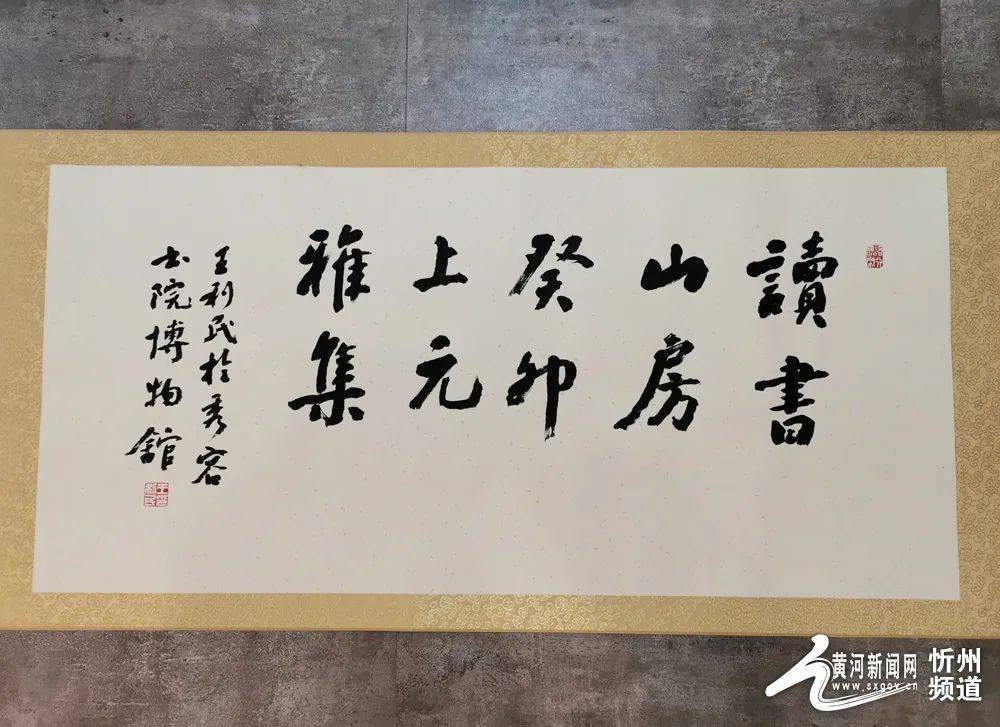 讀書
山房
癸卯
上元
雅集
王利民於秀容
书院博物館
黄河新闻网
www.sxgov.cn
忻州
频道